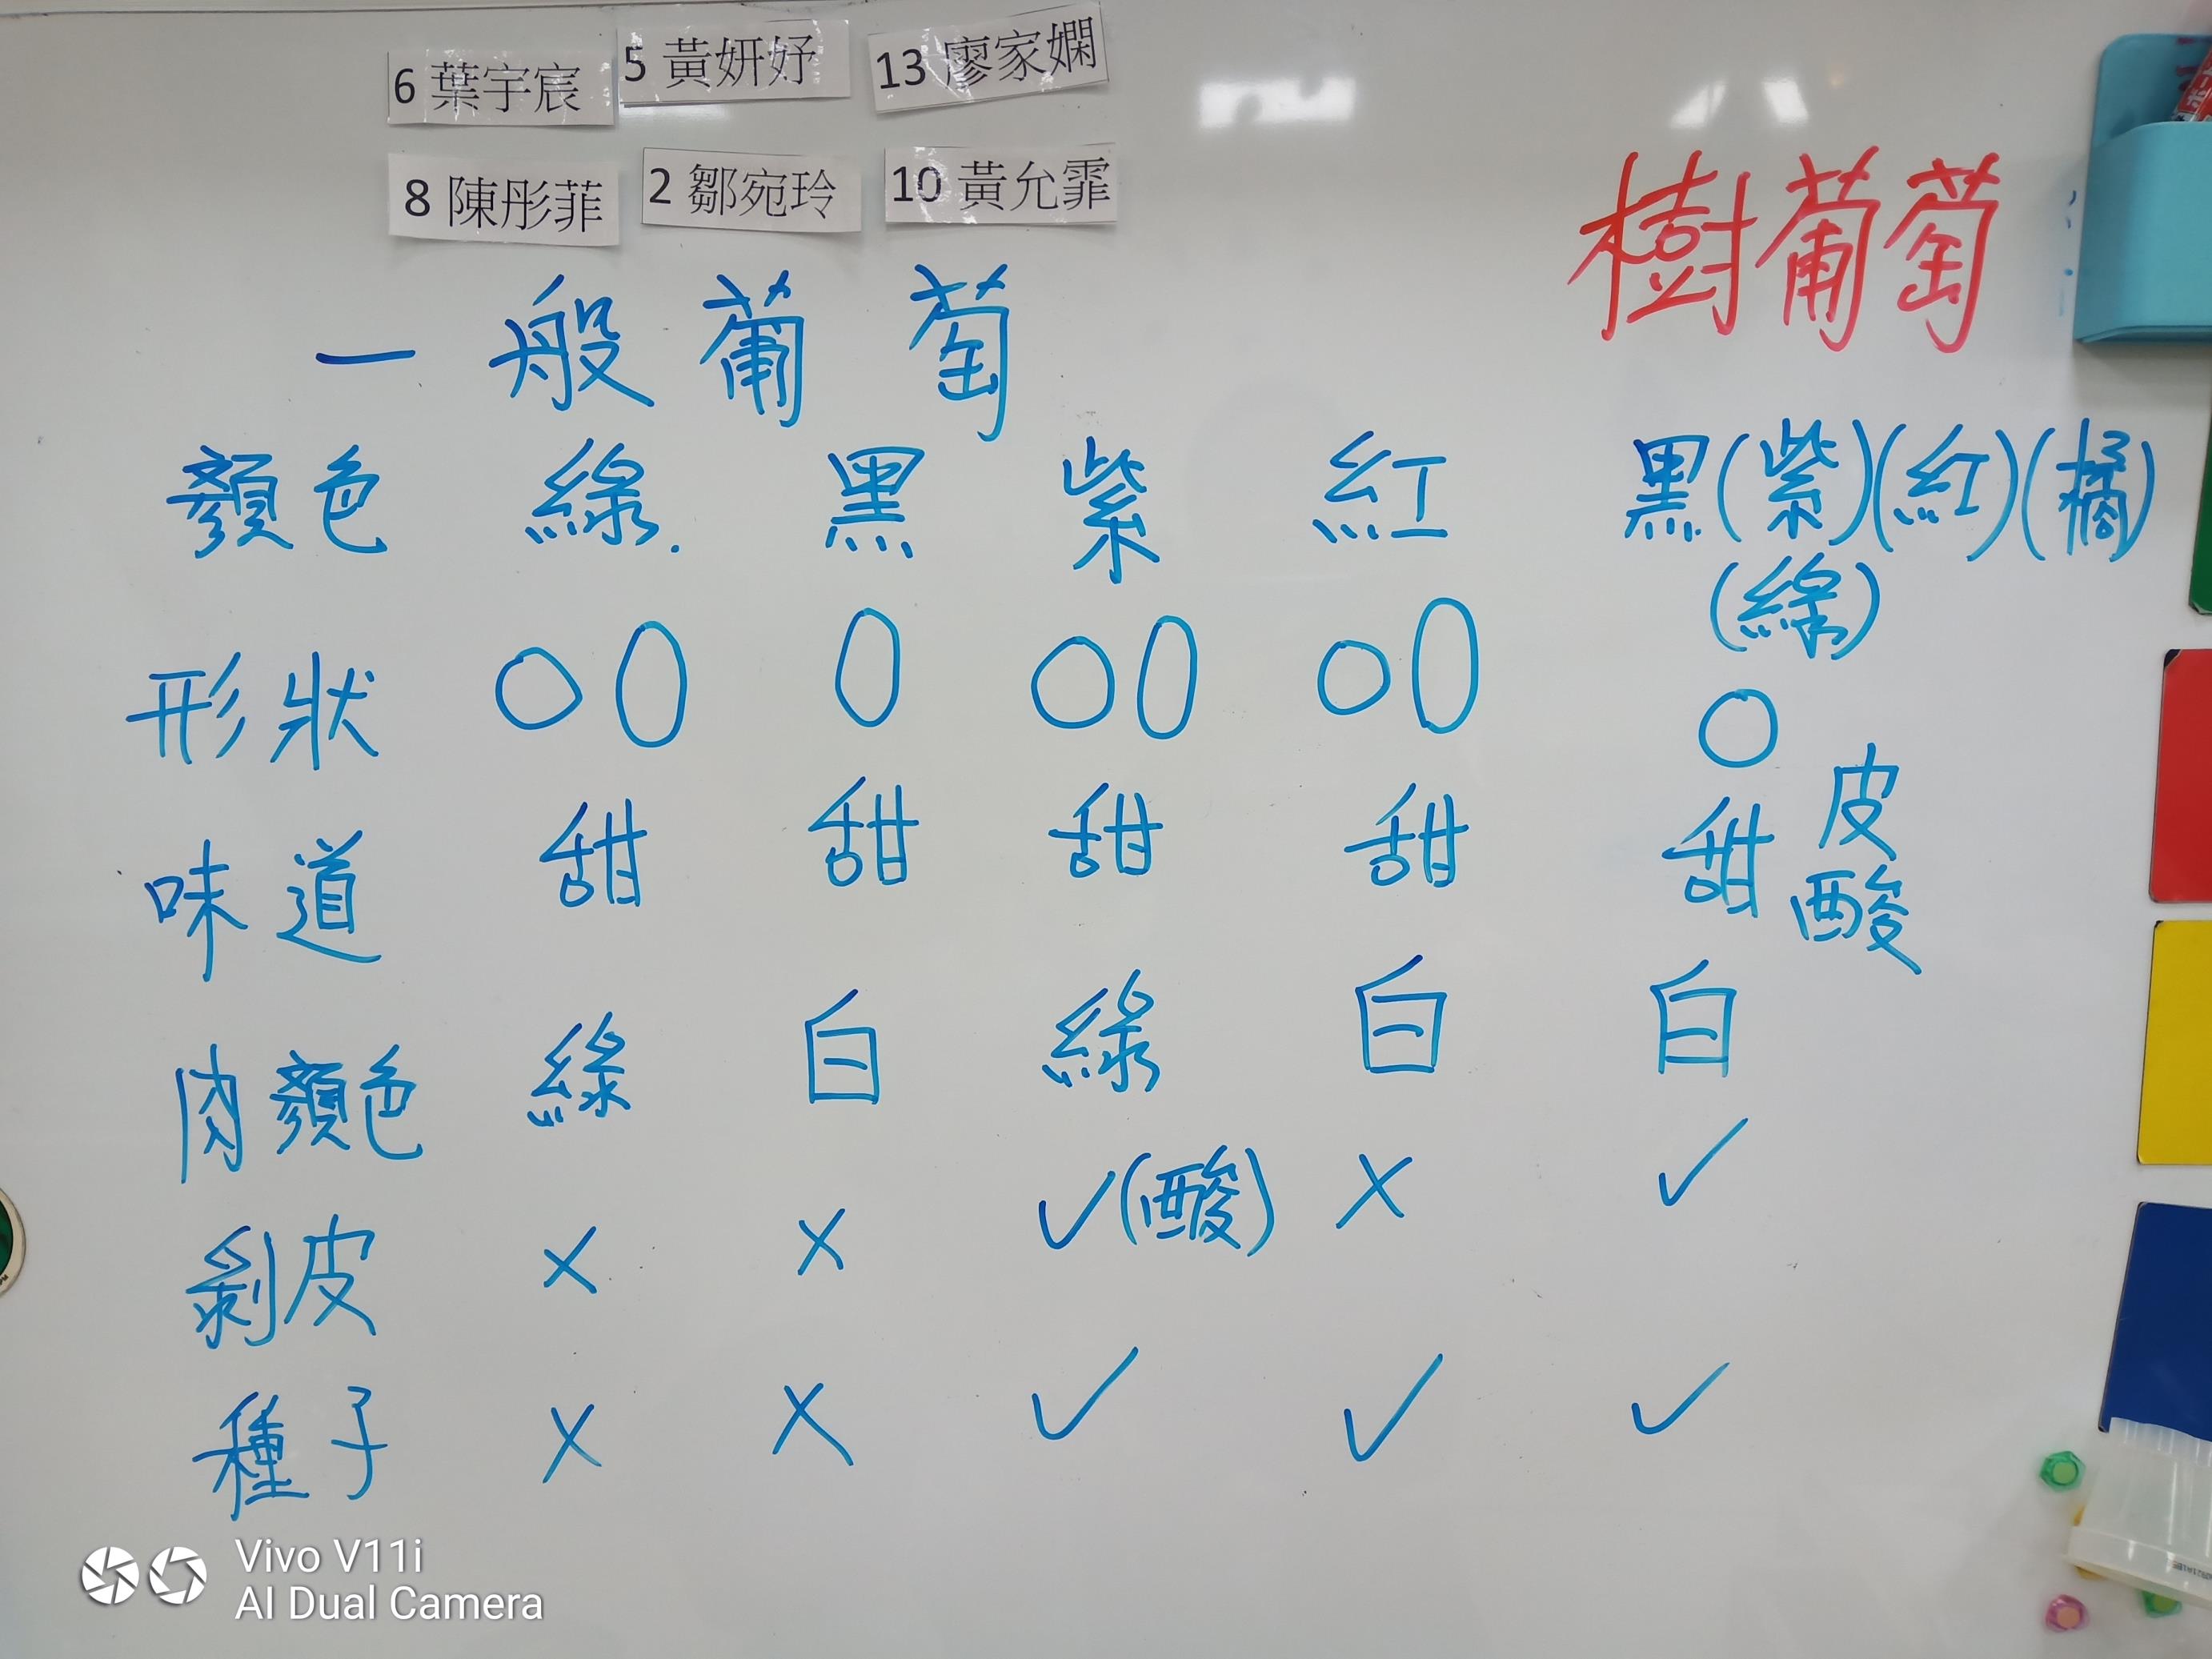 6 葉宇宸 5 黃妍妤 13 廖家嫻
8 陳彤菲 2 鄒宛玲 10 黃允霏
樹葡萄
一般葡萄
顏色 綠. 黑 紫 紅 黑(紫)(紅)(橘)
(綠)
形狀
味道 甜 甜 甜 甜 甜 皮酸
肉顏色 綠 白 綠 白 白
剝皮 × × ✓(酸) × ✓
種子 × × ✓ ✓ ✓
Vivo V11i
AI Dual Camera